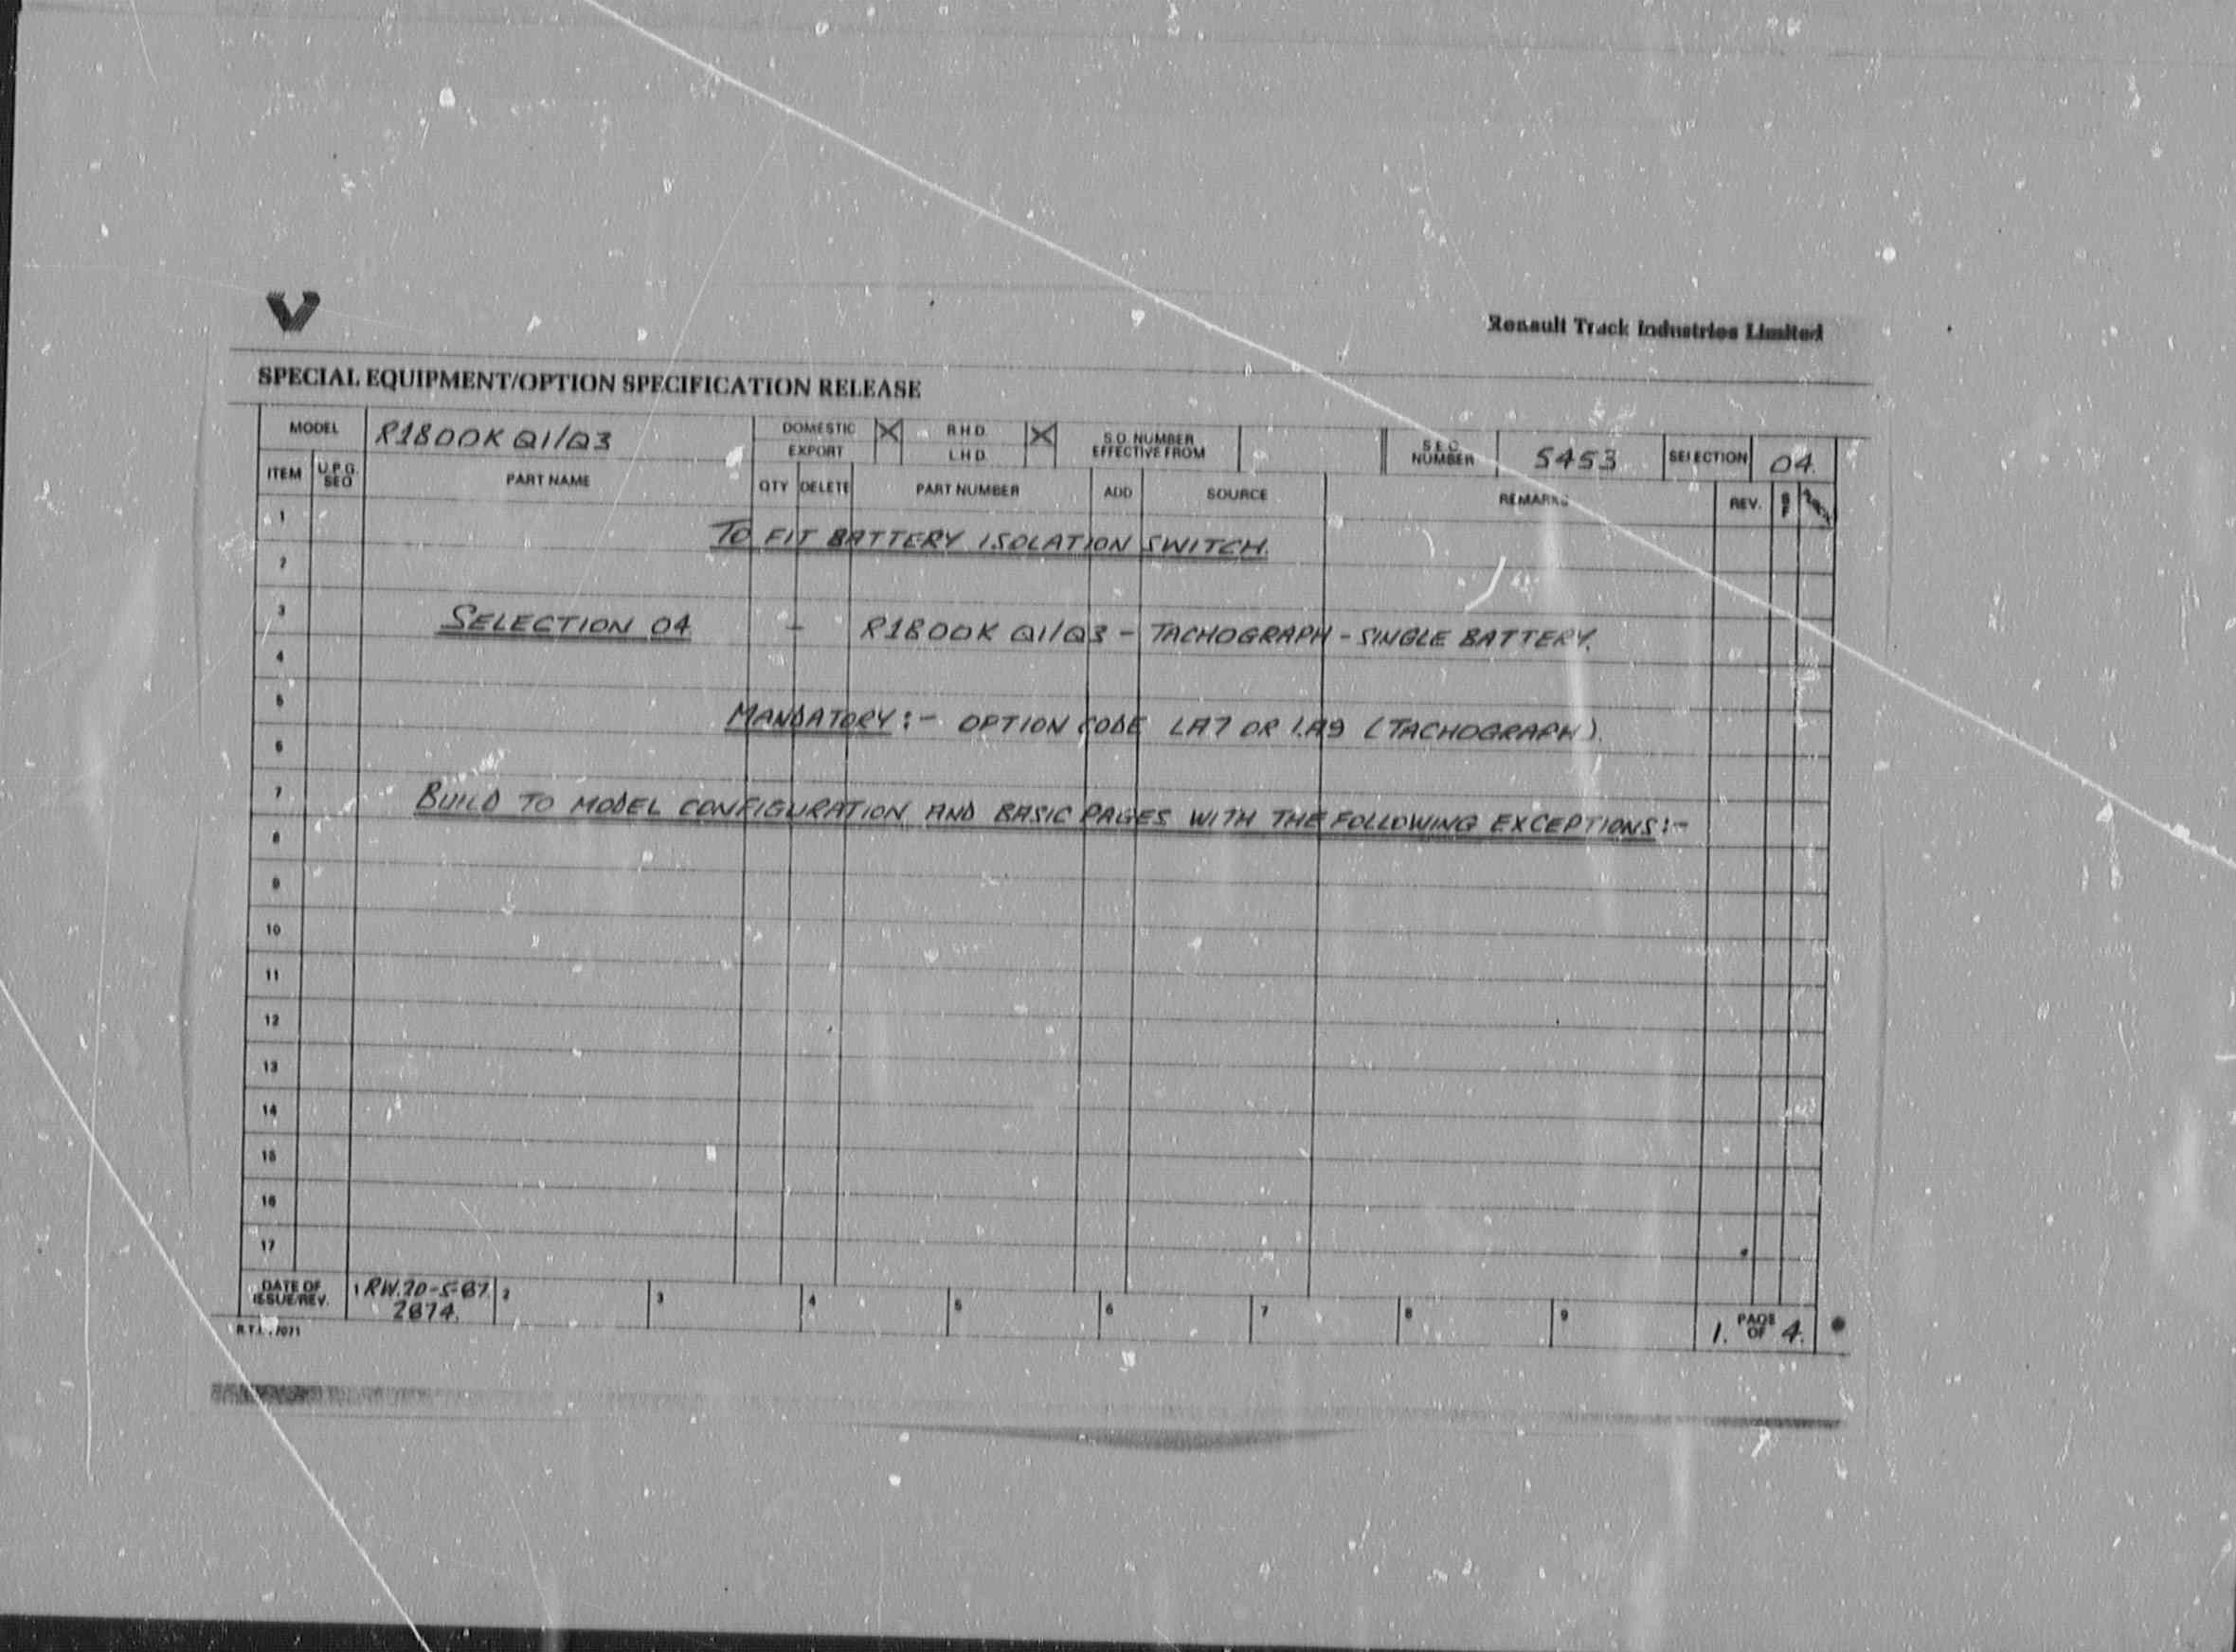 Renault Truck Industries Limited
SPECIAL EQUIPMENT/OPTION SPECIFICATION RELEASE
MODEL R1800K Q1/Q3 DOMESTIC X R.H.D. X S.O. NUMBER S.E.O. 5453 SELECTION 04.
EXPORT L.H.D. EFFECTIVE FROM NUMBER
ITEM U.P.G. SEQ PART NAME QTY DELETE PART NUMBER ADD SOURCE REMARKS REV.
1
TO FIT BATTERY ISOLATION SWITCH.
2
3
SELECTION 04 - R1800K Q1/Q3 - TACHOGRAPH - SINGLE BATTERY.
4
5
MANDATORY :- OPTION CODE LA7 OR LA9 (TACHOGRAPH).
6
7
BUILD TO MODEL CONFIGURATION AND BASIC PAGES WITH THE FOLLOWING EXCEPTIONS:-
8
9
10
11
12
13
14
15
16
17
DATE OF 1 RW. 20-5-87. 2 3 4 5 6 7 8 9 1. PAGE OF 4.
ISSUE/REV. 2874.
R.T.I. 7071